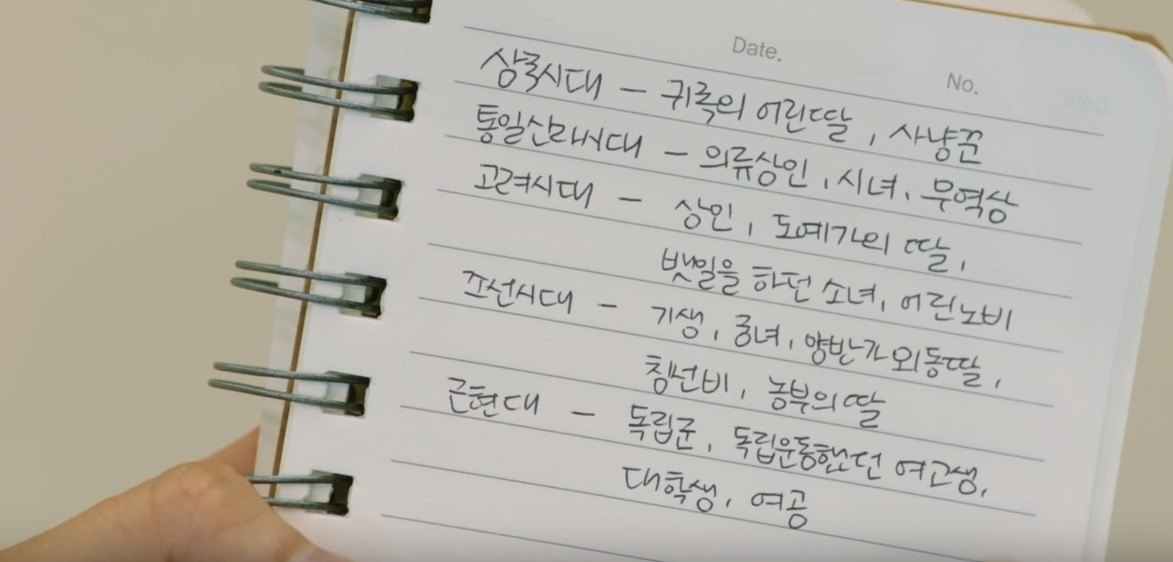 Date.
No.
삼국시대 - 귀족의 어린딸, 사냥꾼
통일신라시대 - 의류상인, 시녀, 무역상
고려시대 - 상인, 도예가의 딸,
뱃일을 하던 소녀, 어린노비
조선시대 - 기생, 궁녀, 양반가 외동딸,
침선비, 농부의 딸
근현대 - 독립군, 독립운동했던 여고생,
대학생, 여공